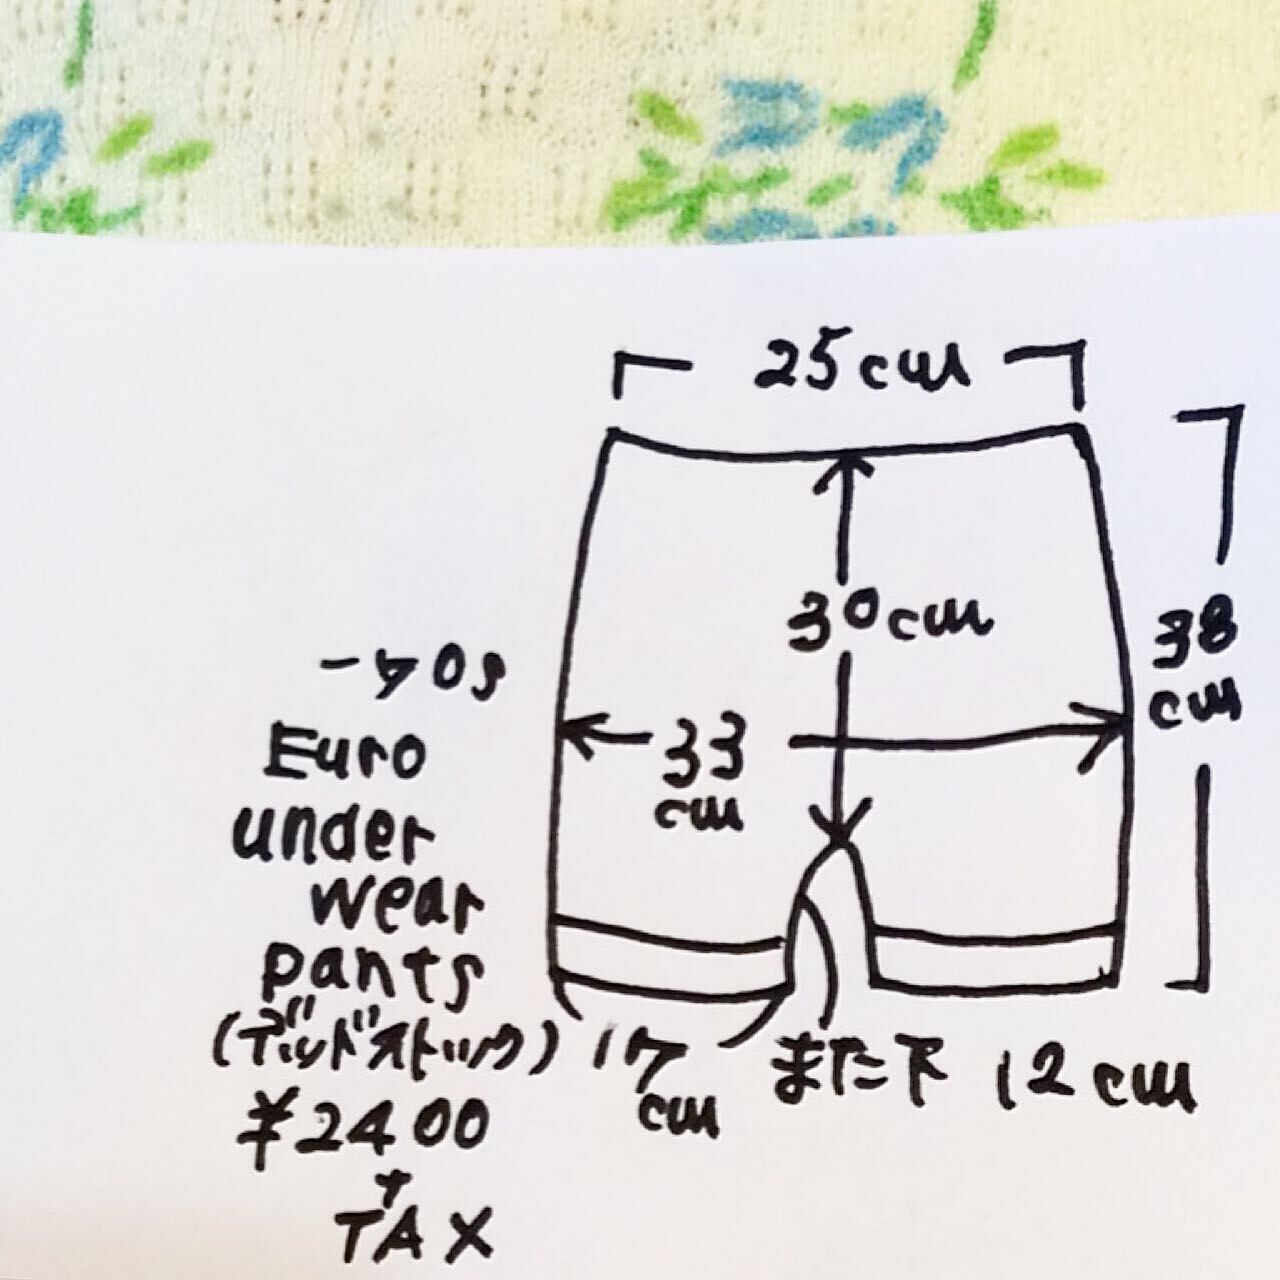 25cm
30cm
38
cm
33
cm
-70s
Euro
under
wear
pants
(デッドストック)
¥2400
+
TAX
17
cm
また下 12cm